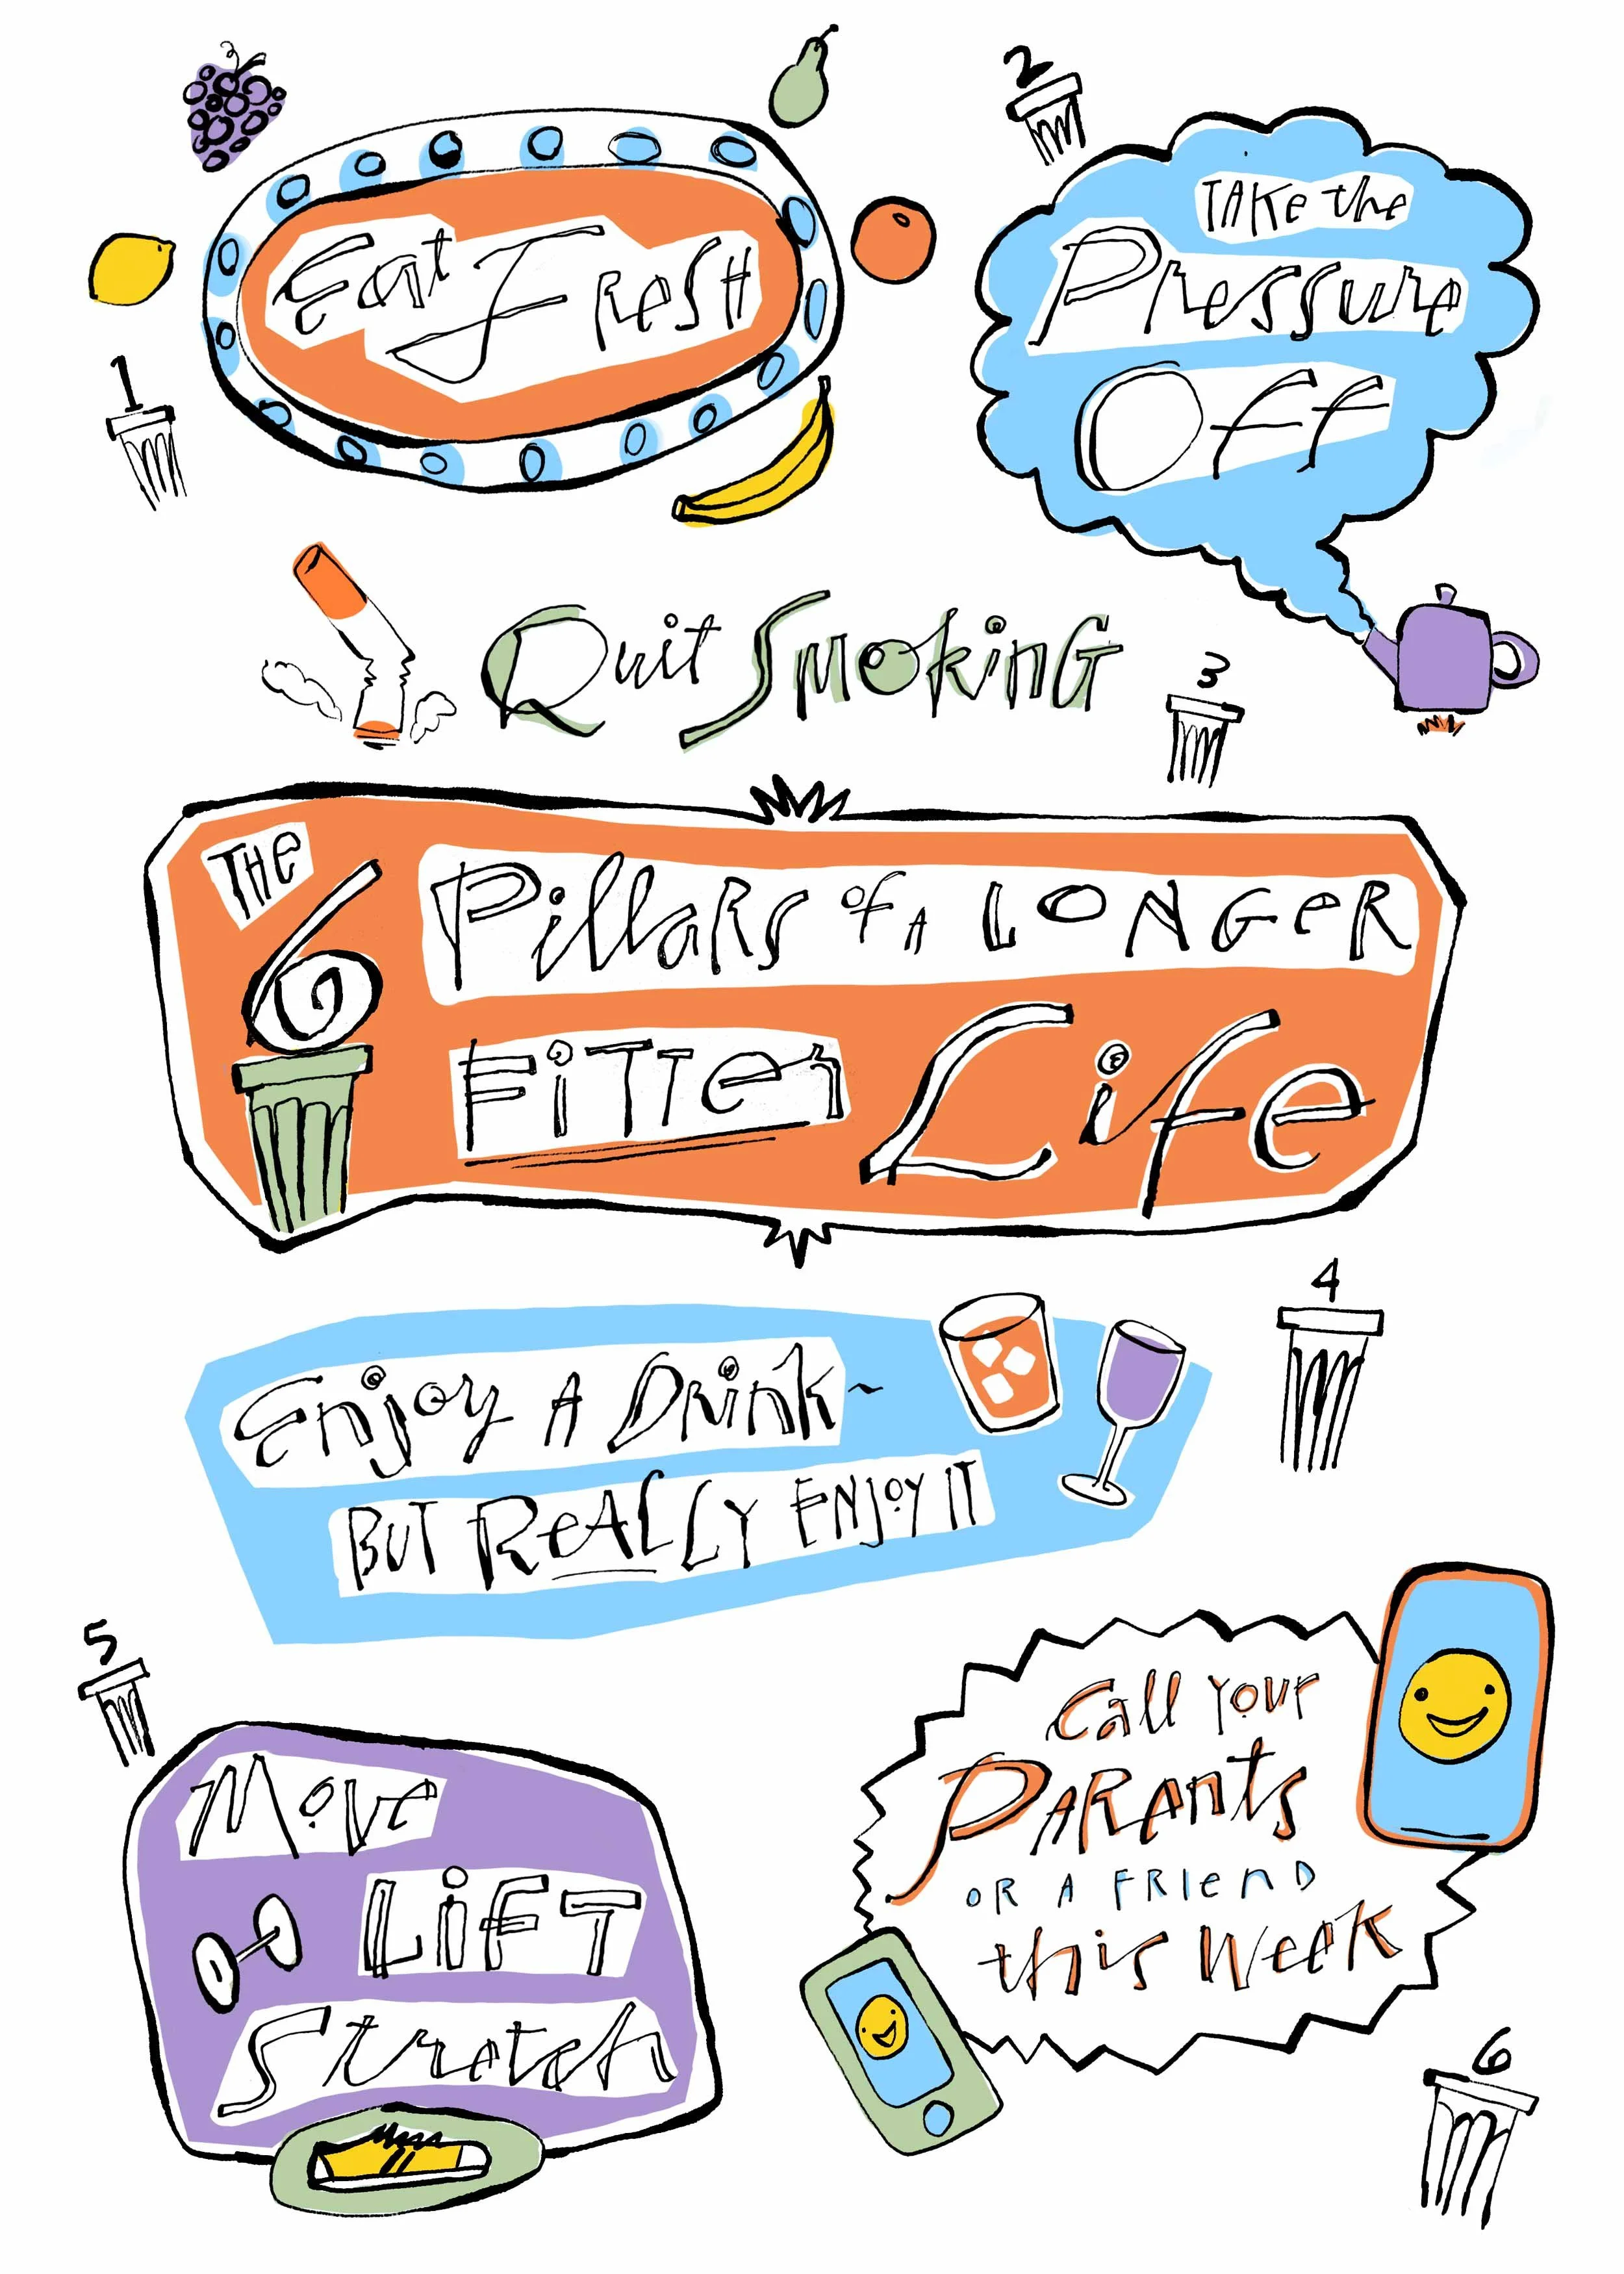 1
Eat Fresh
2
Take the
Pressure
Off
Quit Smoking
3
The
6 Pillars of a Longer
Fitter Life
4
Enjoy a Drink~
But Really Enjoy It
5
Move
Lift
Stretch
Call Your
Parents
or a friend
this Week
6